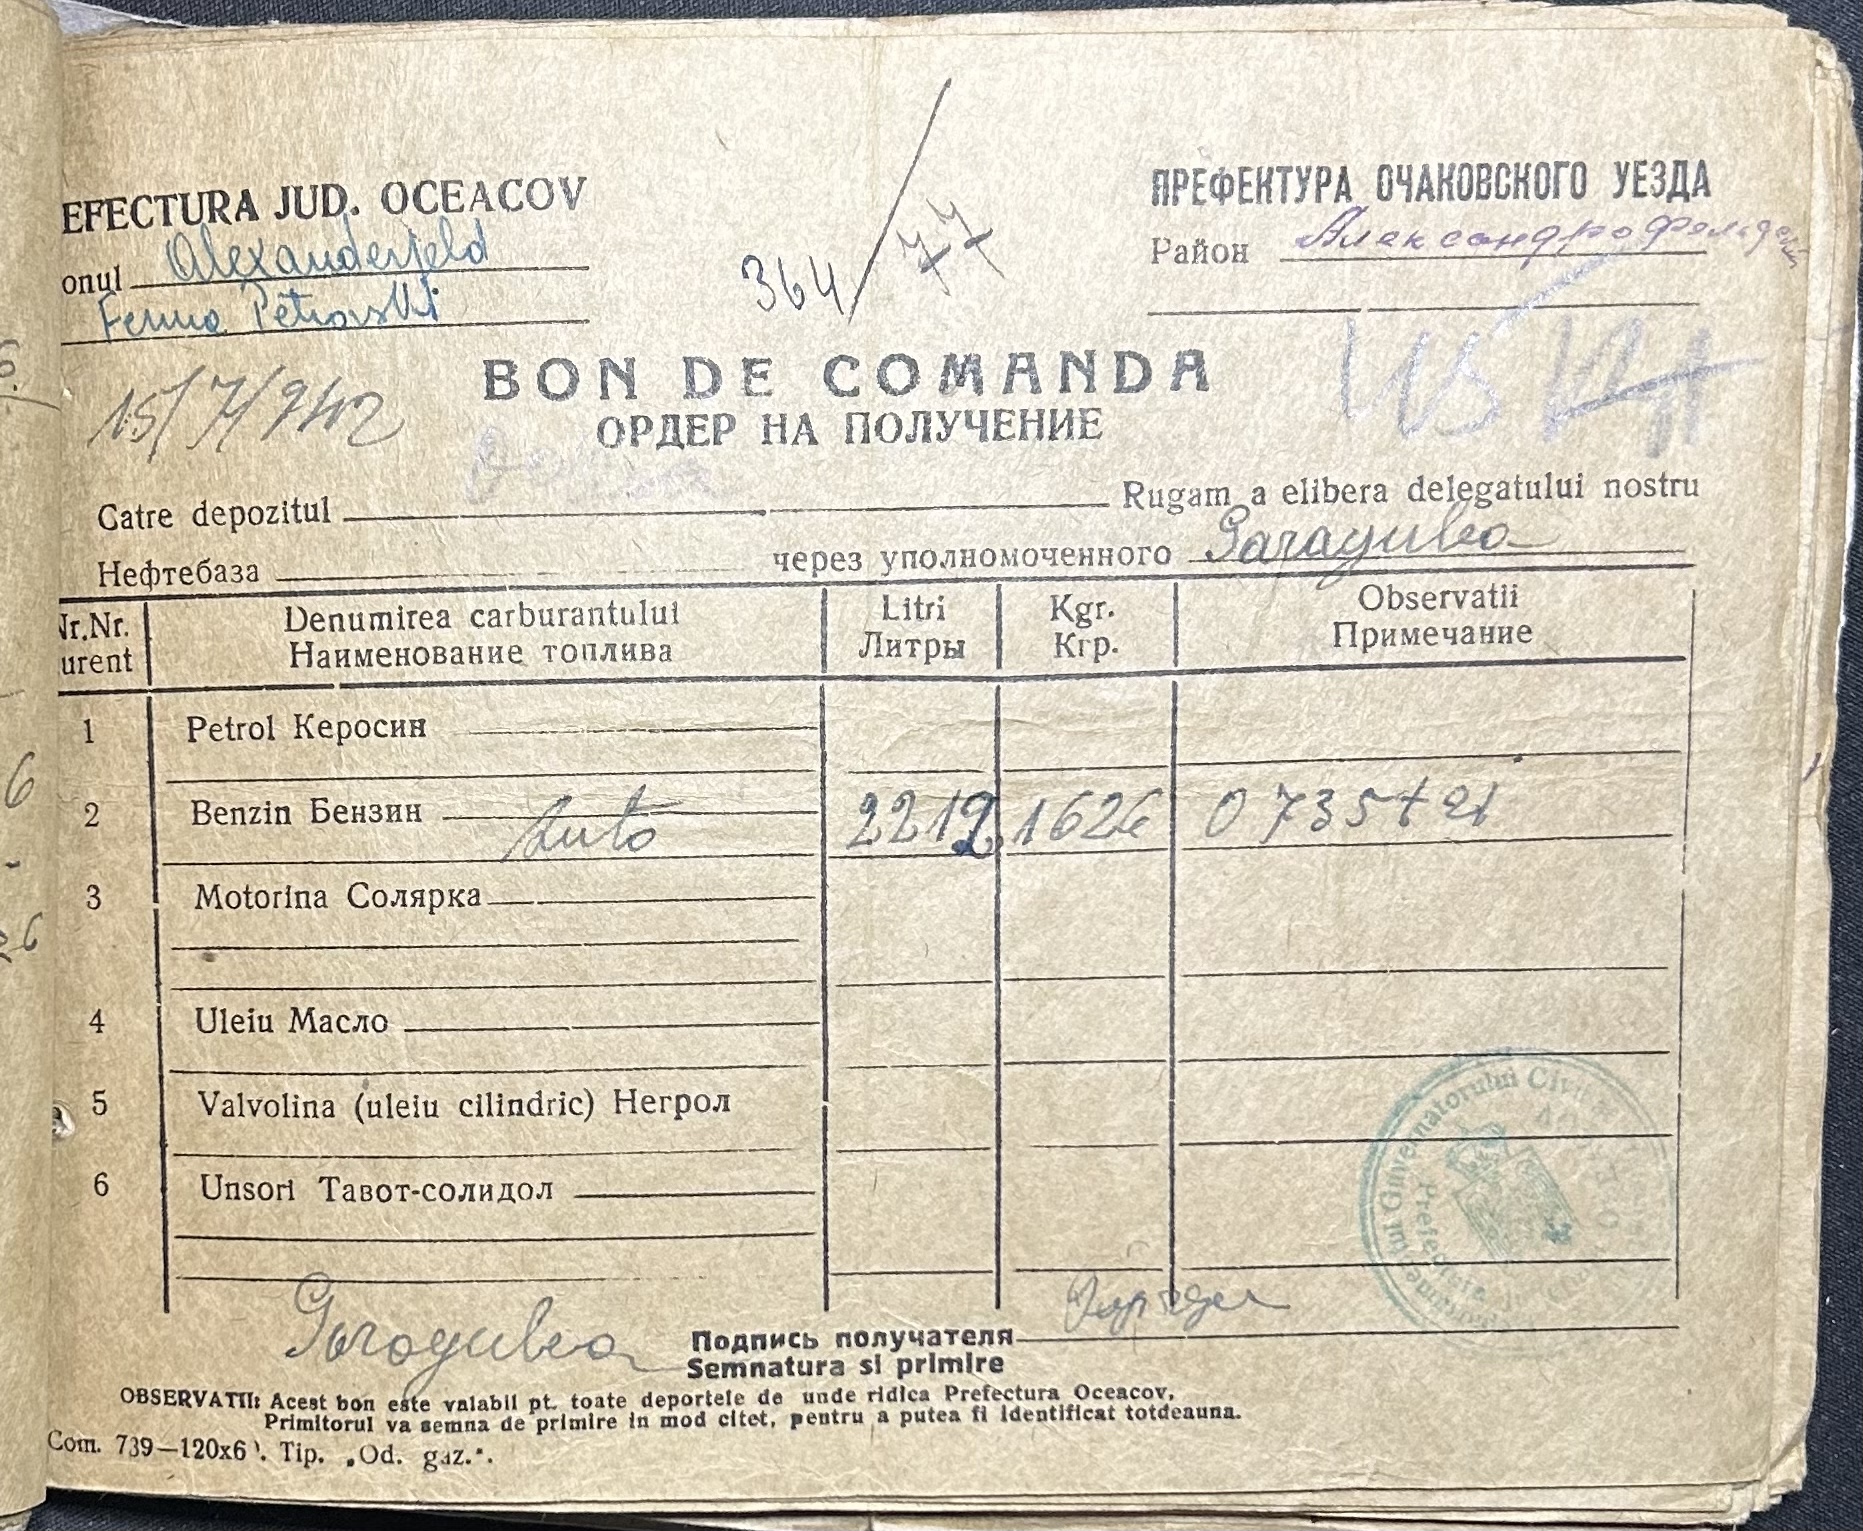 EFECTURA JUD. OCEACOV
ПРЕФЕКТУРА ОЧАКОВСКОГО УЕЗДА
onul Alexanderfeld
Район Александрофельдский
Ferma Petrovski
364/77
15/7/942
BON DE COMANDA
ОРДЕР НА ПОЛУЧЕНИЕ
Catre depozitul
Rugam a elibera delegatului nostru
Нефтебаза
через уполномоченного
Nr.Nr.
urent
Denumirea carburantului
Наименование топлива
Litri
Литры
Kgr.
Кгр.
Observatii
Примечание
1 Petrol Керосин
2 Benzin Бензин Auto 2212 1626
3 Motorina Солярка
4 Uleiu Масло
5 Valvolina (uleiu cilindric) Негрол
6 Unsori Тавот-солидол
Подпись получателя
Semnatura si primire
OBSERVATII: Acest bon este valabil pt. toate deportele de unde ridica Prefectura Oceacov.
Primitorul va semna de primire in mod citet, pentru a putea fi identificat totdeauna.
Com. 739—120x6 . Tip. „Od. gaz.".
Guvernatorului Civil
Prefectura